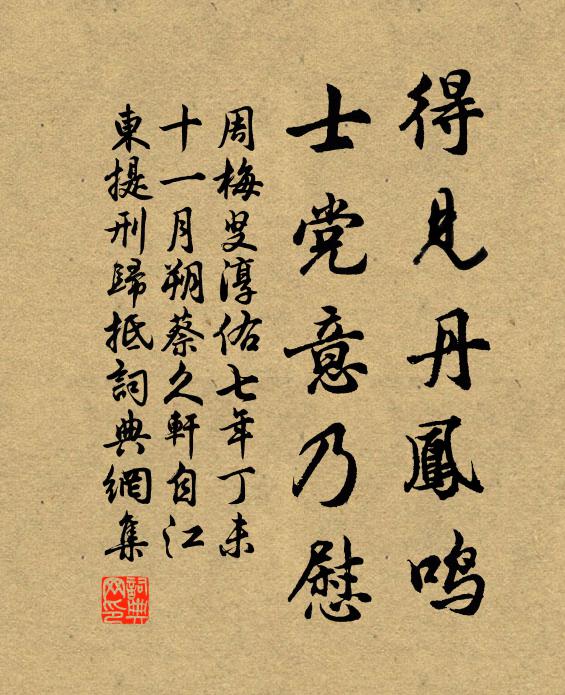 得見丹鳳鳴
士党意乃慰
周梅叟淳佑七年丁未
十一月朔蔡久軒自江
東提刑歸抵詞典網集
詞典网印